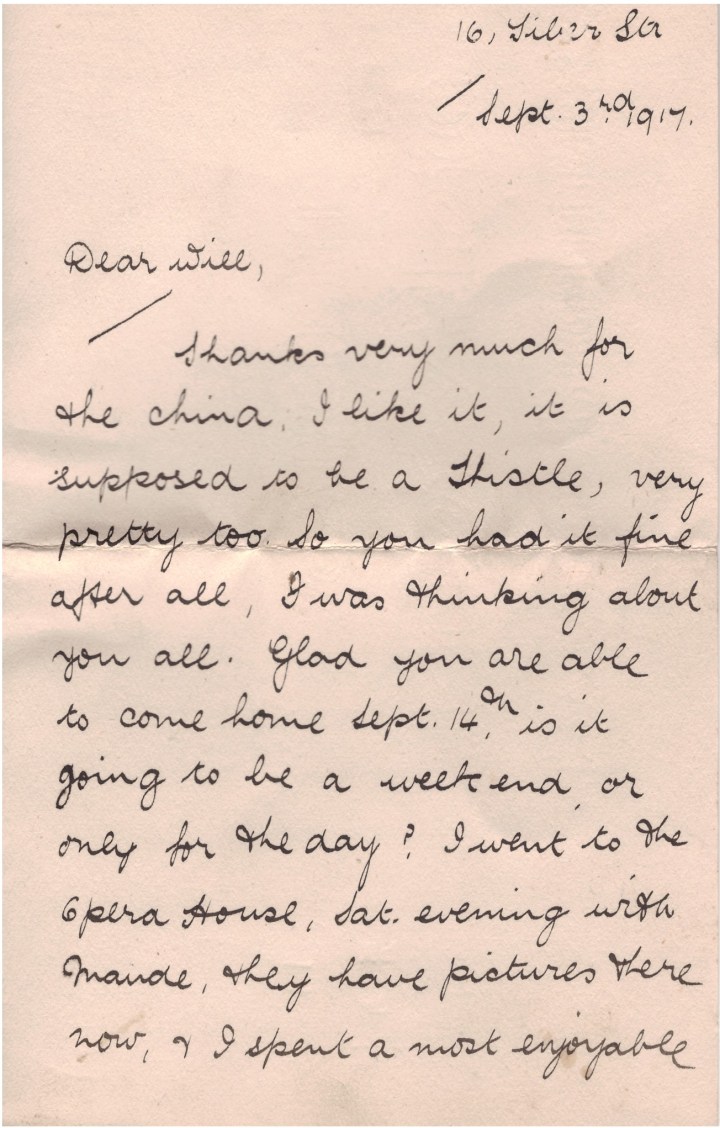 16, Silver Str
Sept. 3rd. 1917.
Dear Will,
Thanks very much for
the china. I like it, it is
supposed to be a Thistle, very
pretty too. So you had it fine
after all, I was thinking about
you all. Glad you are able
to come home Sept. 14th, is it
going to be a week end, or
only for the day? I went to the
Opera House, Sat. evening with
Maude, they have pictures there
now, & I spent a most enjoyable